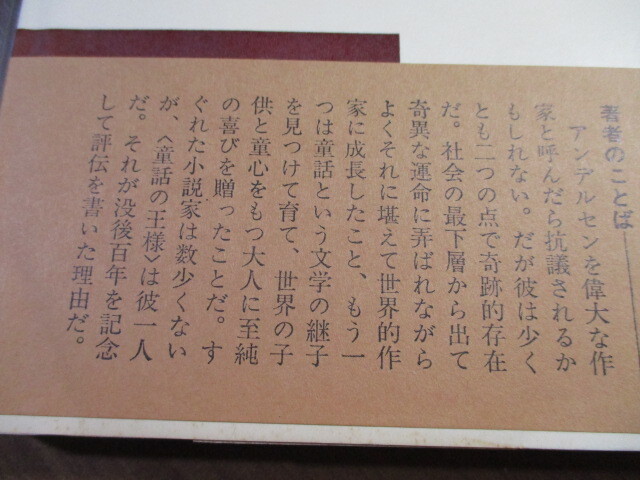 著者のことば
アンデルセンを偉大な作
家と呼んだら抗議されるか
もしれない。だが彼は少く
とも二つの点で奇跡的存在
だ。社会の最下層から出て
奇異な運命に弄ばれながら
よくそれに堪えて世界的作
家に成長したこと、もう一
つは童話という文学の継子
を見つけて育て、世界の子
供と童心をもつ大人に至純
の喜びを贈ったことだ。す
ぐれた小説家は数少くない
が、〈童話の王様〉は彼一人
だ。それが没後百年を記念
して評伝を書いた理由だ。